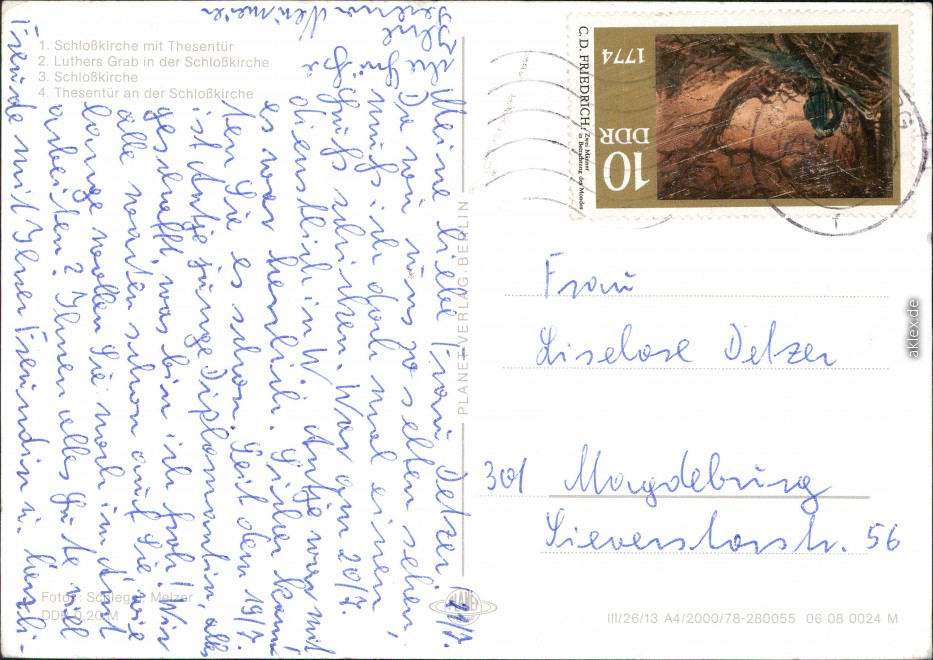 1. Schloßkirche mit Thesentür
2. Luthers Grab in der Schloßkirche
3. Schloßkirche
4. Thesentür an der Schloßkirche
21/7.
Meine liebe Frau Detzer!
Da wir uns so selten sehen,
muß ich doch mal einen
Gruß schicken. War am 20/7.
dienstlich in W. Antje war mit
es war herrlich. Sicher kann
ten Sie es schon. Seit dem 19/7.
ist Antje junge Diplomandin, alles
geschafft, was bin ich froh! Wir
alle warten schon auf Sie wie
lange wollen Sie noch im Amt
arbeiten? Ihnen alles Gute viel
Freude mit Ihrer Freundin u. herzli-
PLANET-VERLAG BERLIN
PLANET
Fotos: Schlegel, Melzer
DDR 0,20 M
C. D. FRIEDRICH: Zwei Männer
in Betrachtung des Mondes
1774
DDR
10
Frau
Liselose Detzer
301 Magdeburg
Sieverstorstr. 56
III/26/13 A4/2000/78-280055 06 08 0024 M
aklex.de